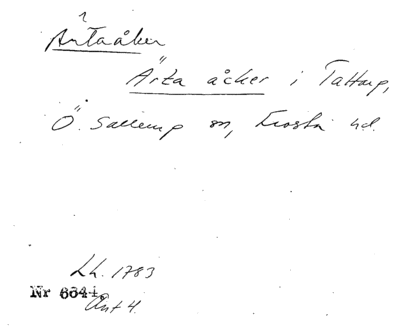 Ärtaåker
Ärta åcker i Tattarp,
Ö. Sallerup sn, Frosta hd.
Lh. 1783
Nr 6641
Akt 4.